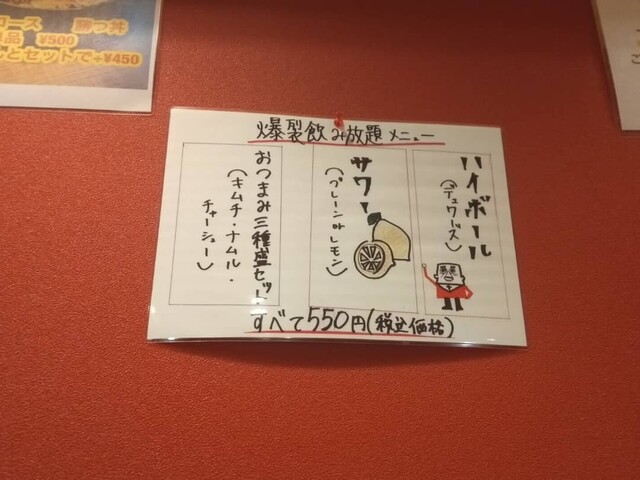 ロース 勝つ丼
単品 ¥500
とセットで+¥450
爆裂飲み放題メニュー
ハイボール
(デュワーズ)
サワー
(プレーンorレモン)
おつまみ三種盛セット
(キムチ・ナムル・
チャーシュー)
すべて550円(税込価格)